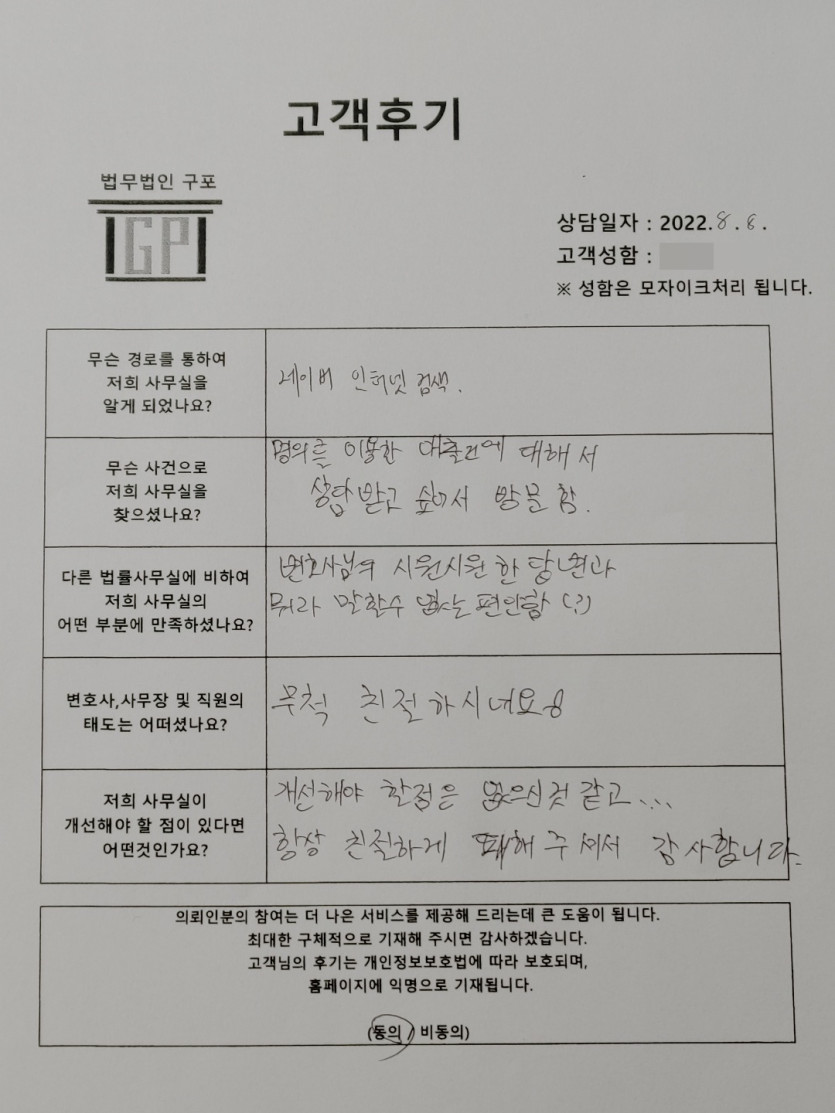 고객후기
법무법인 구포
GP
상담일자 : 2022.8.6.
고객성함 :
※ 성함은 모자이크처리 됩니다.
무슨 경로를 통하여
저희 사무실을
알게 되었나요?
네이버 인터넷 검색.
무슨 사건으로
저희 사무실을
찾으셨나요?
명의를 이용한 대출건에 대해서
상담받고 싶어서 방문함.
다른 법률사무실에 비하여
저희 사무실의
어떤 부분에 만족하셨나요?
변호사님의 시원시원한 답변과
뭐라 말할수 없는 편안함(?)
변호사,사무장 및 직원의
태도는 어떠셨나요?
무척 친절하시네요
저희 사무실이
개선해야 할 점이 있다면
어떤것인가요?
개선해야 할점은 없으신것 같고...
항상 친절하게 대해주셔서 감사합니다.
의뢰인분의 참여는 더 나은 서비스를 제공해 드리는데 큰 도움이 됩니다.
최대한 구체적으로 기재해 주시면 감사하겠습니다.
고객님의 후기는 개인정보보호법에 따라 보호되며,
홈페이지에 익명으로 기재됩니다.
(동의 / 비동의)